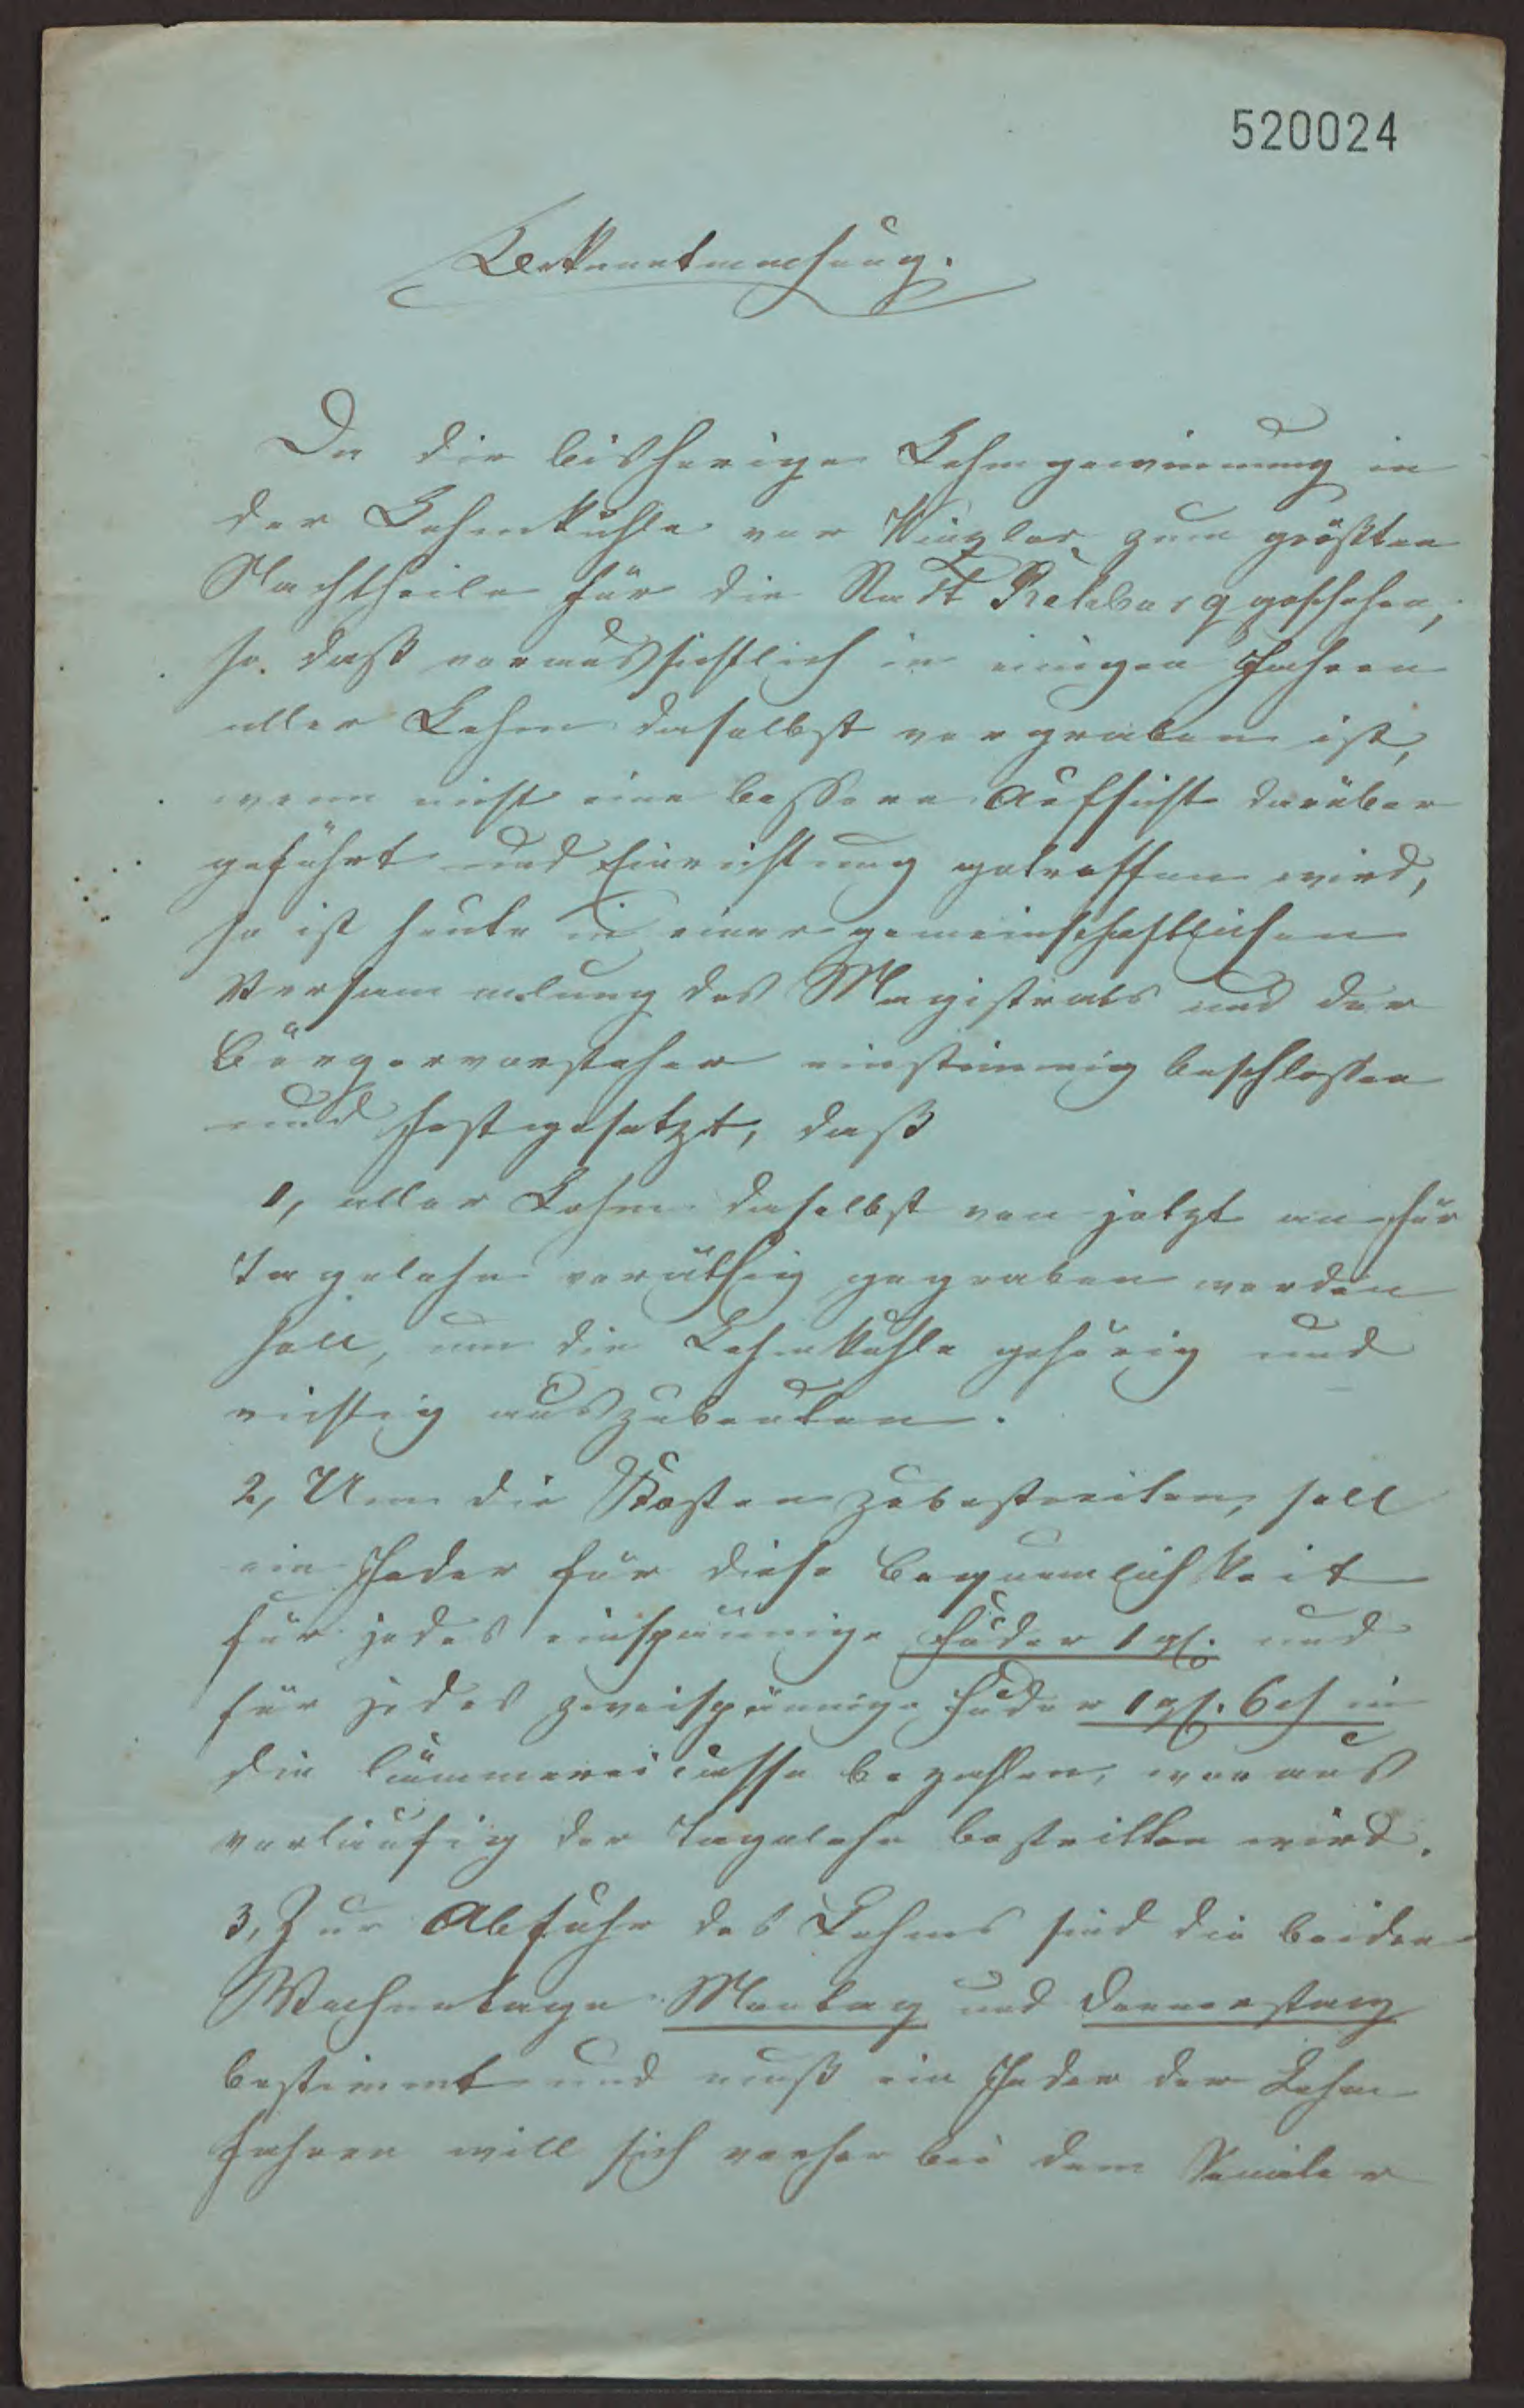 520024
Bekanntmachung.
Da die bisherige Lehmgewinnung in
der Lehmkuhle vor Winzlar zum größten
Nachtheile für die Stadt Rehburg geschehen,
so daß voraussichtlich in einigen Jahren
aller Lehm daselbst vergraben ist,
wenn nicht eine bessere Aufsicht darüber
geführt und Einrichtung getroffen wird,
so ist heute in einer gemeinschaftlichen
Versammlung des Magistrats und der
Bürgervorsteher einstimmig beschlossen
und festgesetzt, daß
1, aller Lehm daselbst von jetzt an für
Tagelohn vorräthig gegraben werden
soll, um die Lehmkuhle gehörig und
richtig auszubeuten.
2, Um die Kosten zubestreiten, soll
ein Jeder für diese Bequemlichkeit
für jedes einspännige Fuder 1 gf. und
für jedes zweispännige Fuder 1 gf. 6 ₰ in
die Cämmereicasse bezahlen, woraus
vorläufig der Tagelohn bestritten wird.
3, Zur Abfuhr des Lehms sind die beiden
Wochentage Montag und Donnerstag
bestimmt und muß ein Jeder der Lehm
fahren will sich vorher bei dem Senator